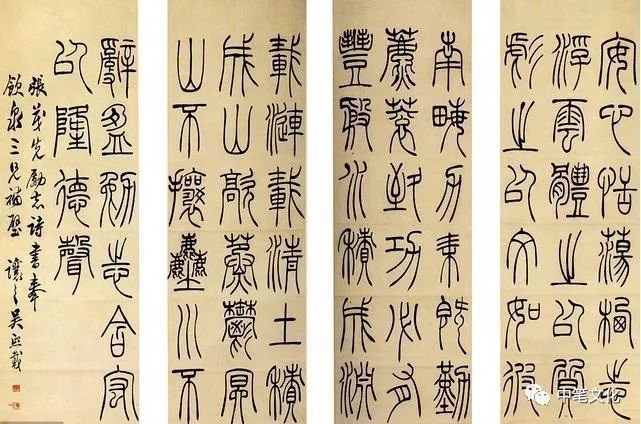 安心恬蕩棲志
浮雲體之以質
彪之以文如彼
南畮力耒既勤
藨蓘致功必有
豐殷水積成淵
載漣載清土積
成山歊蒸鬱冥
山不攘塵川不
辭盈勉志含宏
以隆德聲
張茂先勵志詩書奉
飲泉三兄補壁 讓之吳熙載
中笔文化